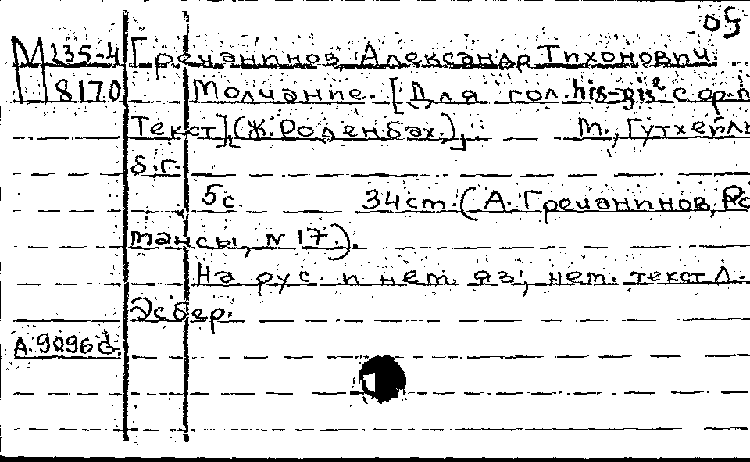 М 135-4 Гречанинов, Александр Тихонович.
8170 Молчание. [Для гол. his-gis² с ф.п.
Текст] (Ж. Роденбах.), М., Гутхейль
б.г.
5с 34cm. (А. Гречанинов, Ро
мансы, N 17).
На рус. и нем. яз; нем. текст Л.
Эсбер.
А.9096